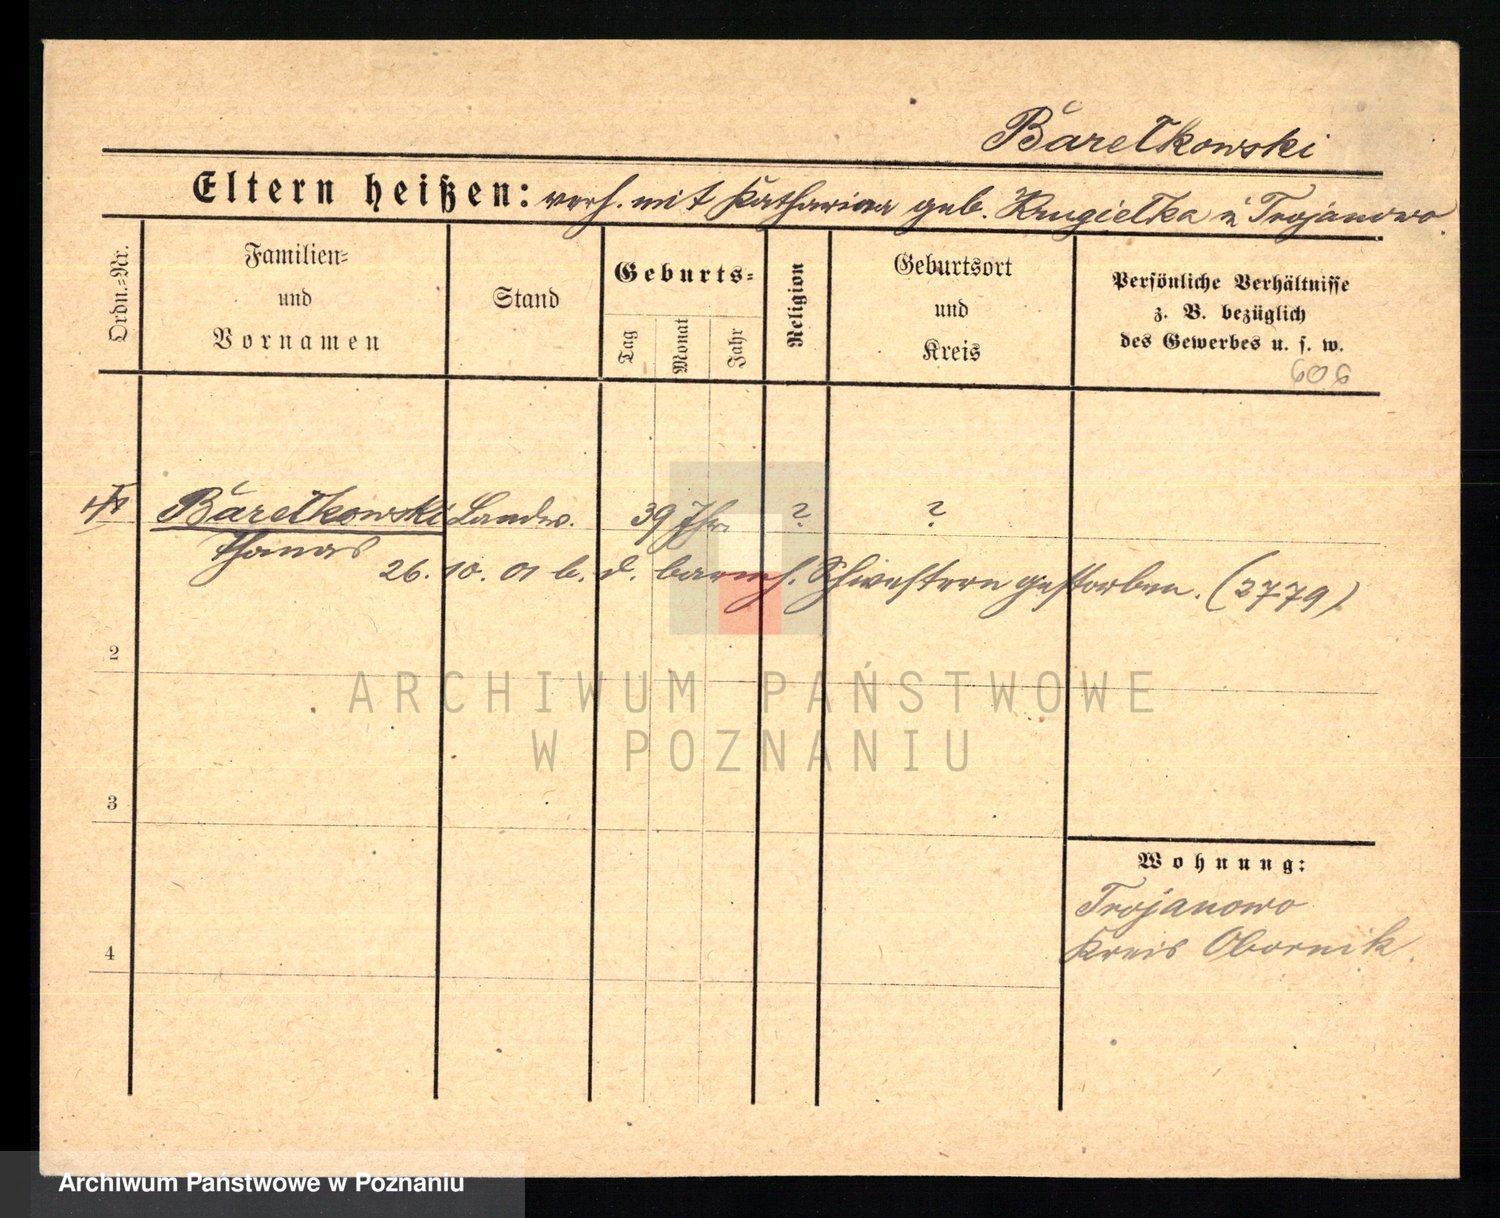 Barełkowski
Eltern heißen: verh. mit Katharina geb. Krugiełka in Trojanowo.
Ordn.-Nr.
Familien-
und
Vornamen
Stand
Geburts-
Tag
Monat
Jahr
Religion
Geburtsort
und
Kreis
Persönliche Verhältnisse
z. B. bezüglich
des Gewerbes u. s. w.
Barełkowski Landw. 39 Jhr. ? ?
Thomas
26. 10. 01 b. d. barmh. Schwestern gestorben. (2779)
2
3
4
Wohnung:
Trojanowo
Kreis Obornik.
ARCHIWUM PAŃSTWOWE
W POZNANIU
Archiwum Państwowe w Poznaniu